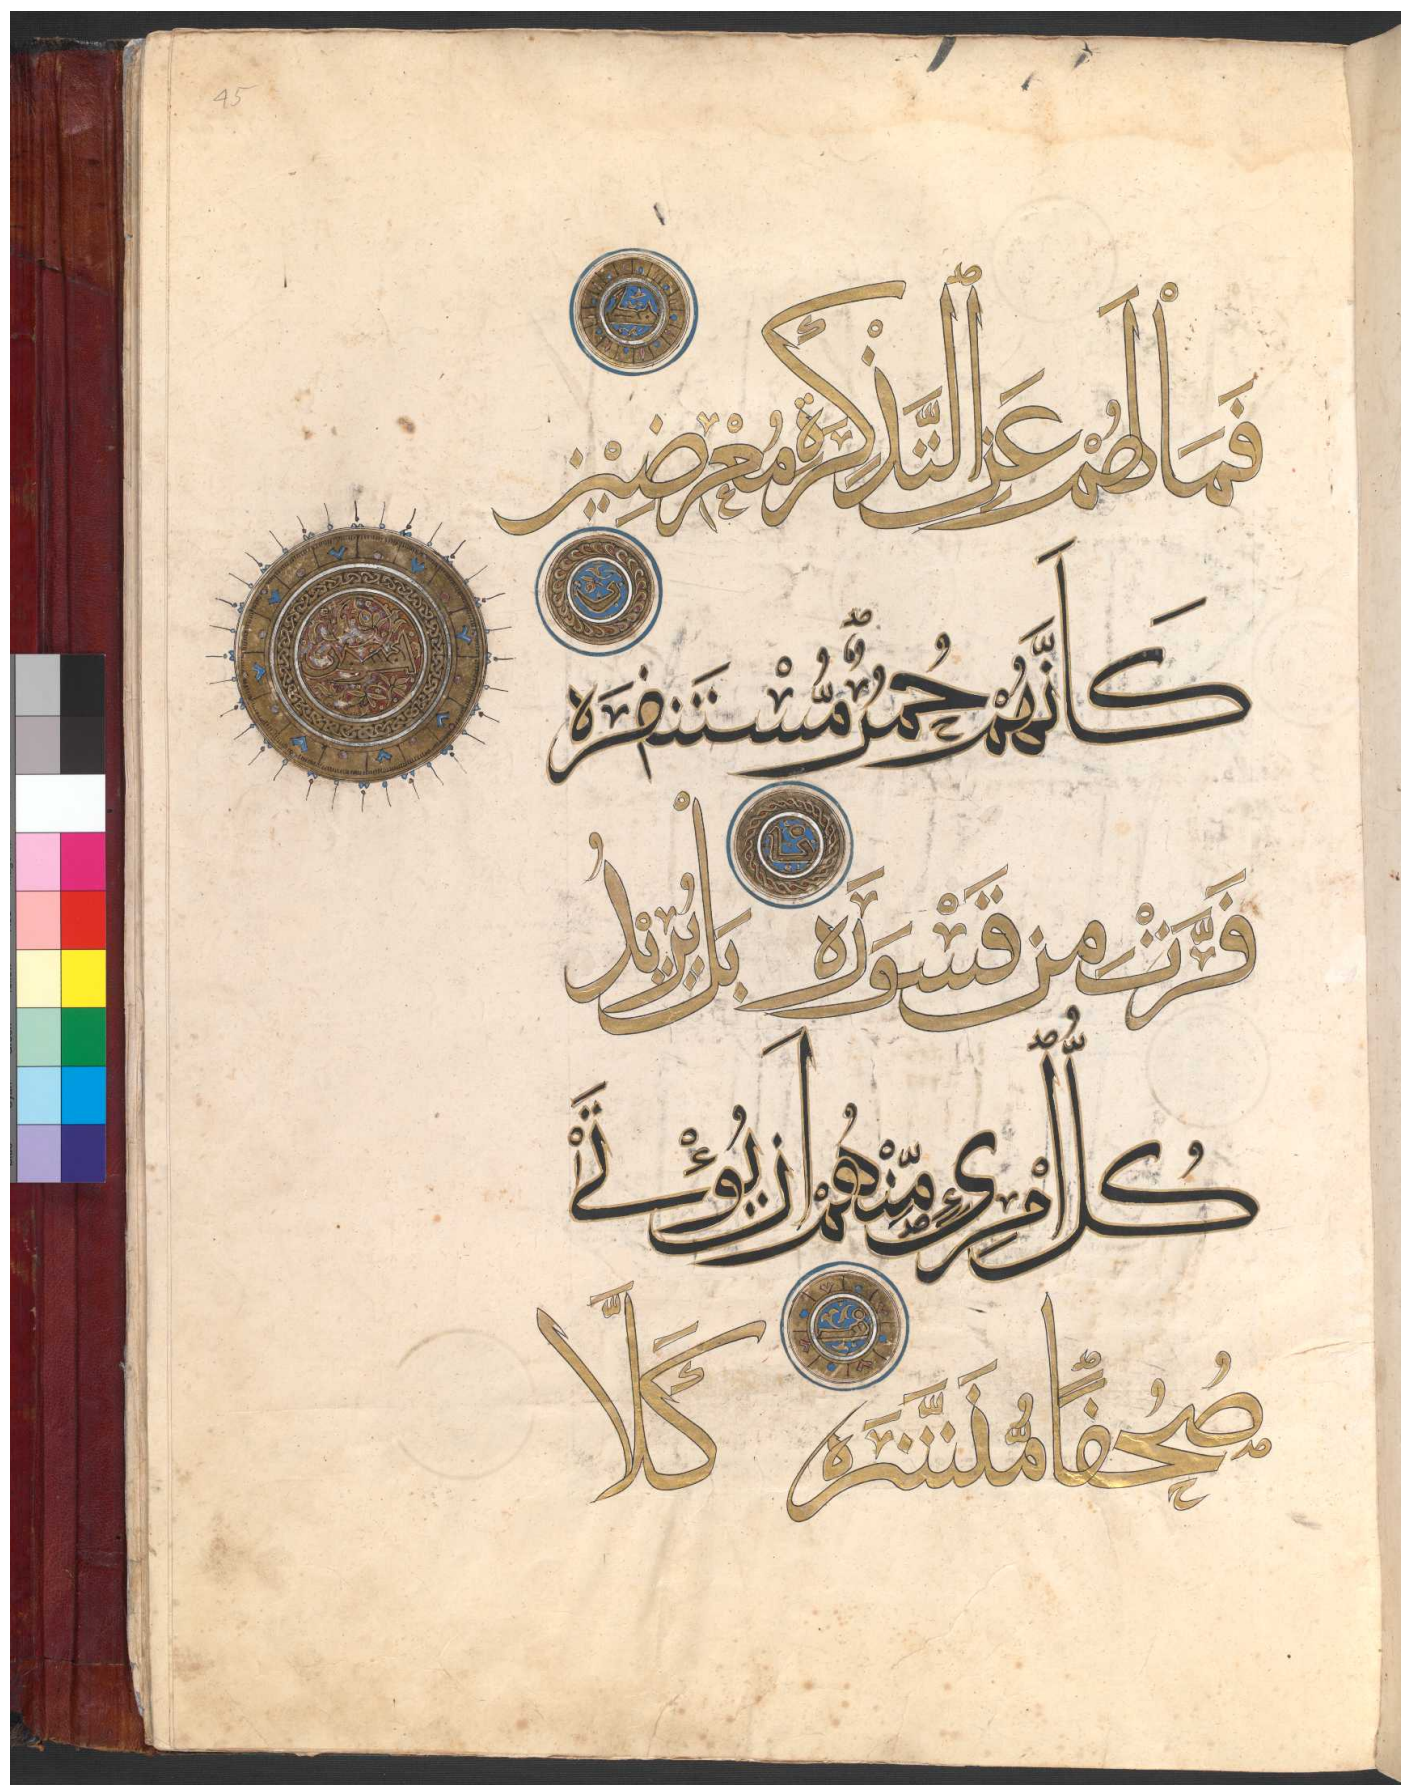 45
فَمَا لَهُمْ عَنِ ٱلتَّذْكِرَةِ مُعْرِضِيْنَ
كَاَنَّهُمْ حُمُرٌ مُّسْتَنفِرَة
فَرَّتْ مِن قَسْوَرَة بَلْ يُرِيْدُ
كُلُّ ٱمْرِئٍ مِّنْهُمْ اَن يُؤْتَىٰ
صُحُفًا مُّنَشَّرَة كَلَّا